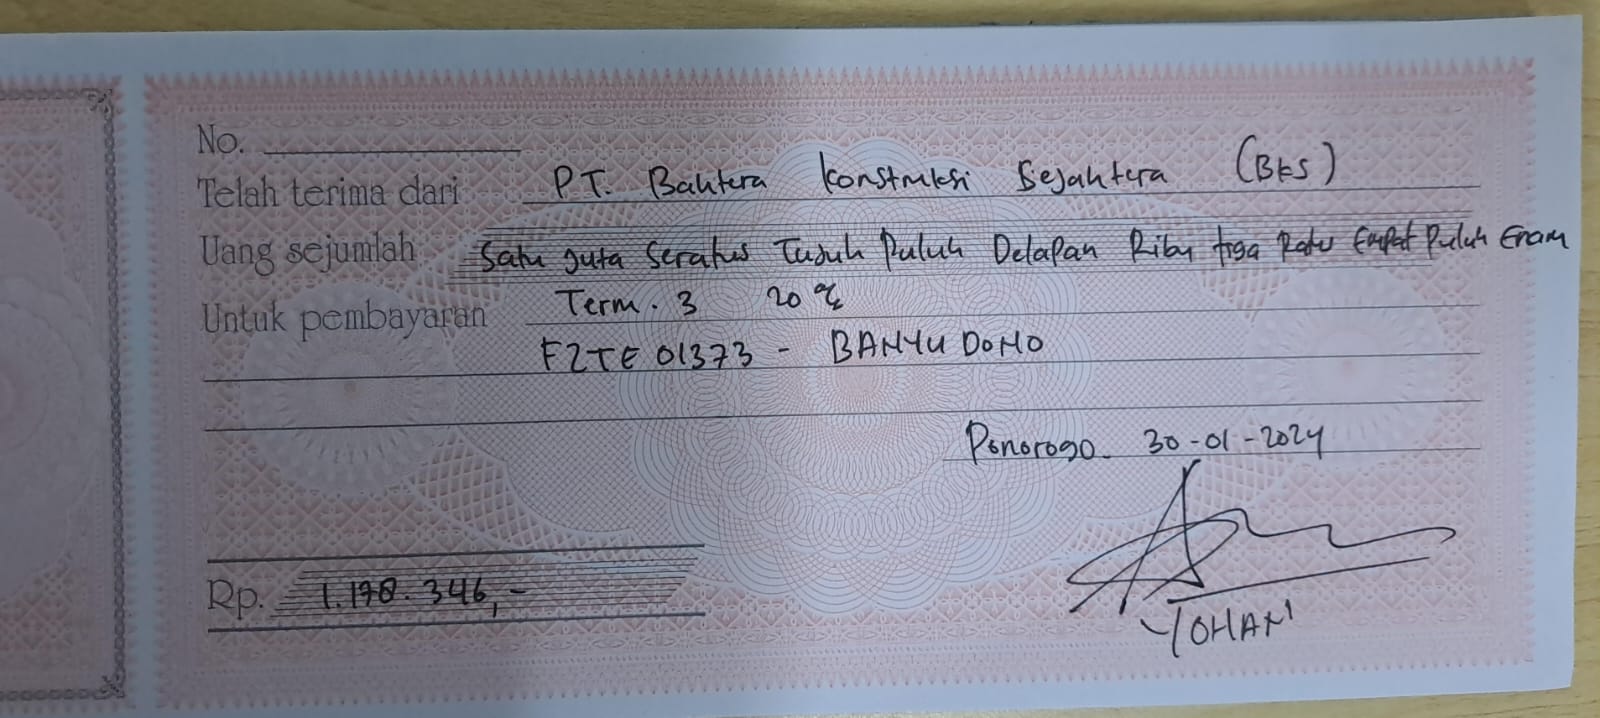 No.
Telah terima dari PT. Bahtera Konstruksi Sejahtera (BKS)
Uang sejumlah Satu Juta Seratus Tujuh Puluh Delapan Ribu tiga Ratus Empat Puluh Enam
Untuk pembayaran Term. 3 20 %
FZTE 01373 - BANYU DONO
Ponorogo 30-01-2024
Rp. 1.178.346,-
YOHAN